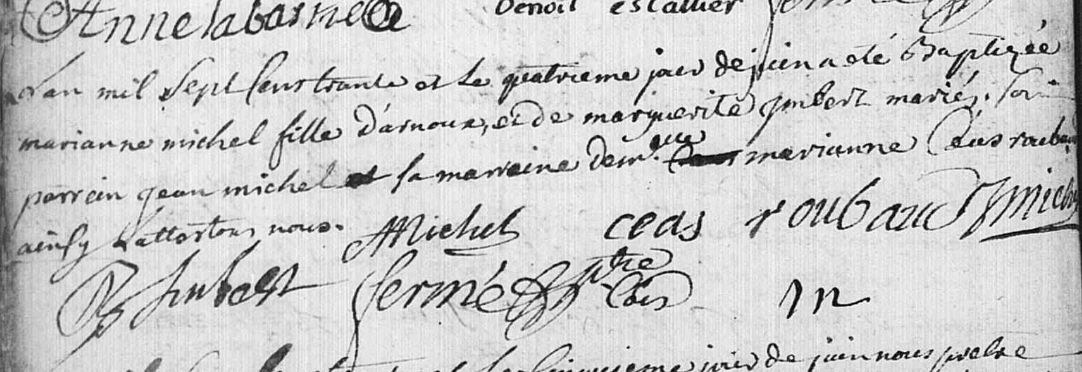 Anne labarnede benoit estallier
Lan mil sept cens trante et le quatrieme jour de juin a eté Baptizée
marianne michel fille d'arnoux, et de marguerite jmbert mariés. son
parrein jean michel et sa marreine dem.que marianne Ceas roubaud
ainsy l'attestons nous. Michel ceas roubaud J michel
Jmbert fermé ptre Curé
Cinquieme jour de juin nous prebtre